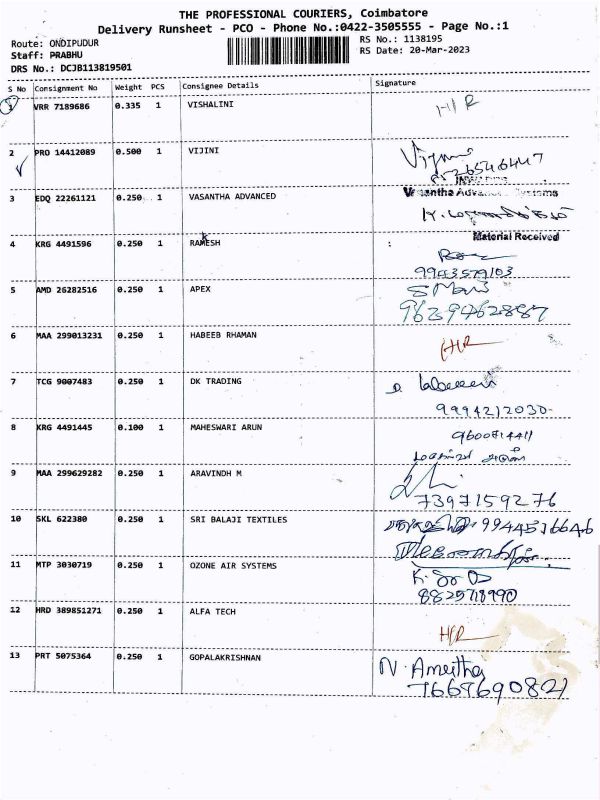 THE PROFESSIONAL COURIERS, Coimbatore
Delivery Runsheet - PCO - Phone No.:0422-3505555 - Page No.:1
Route: ONDIPUDUR
RS No.: 1138195
Staff: PRABHU
RS Date: 20-Mar-2023
DRS No.: DCJB113819501
S No Consignment No Weight PCS Consignee Details Signature
1 VRR 7189686 0.335 1 VISHALINI H/R
2 PRO 14412089 0.500 1 VIJINI
3 EDQ 22261121 0.250 1 VASANTHA ADVANCED Vasantha Advanced Systems
Material Received
4 KRG 4491596 0.250 1 RAMESH
9943579103
5 AMD 26282516 0.250 1 APEX S Mani
9629462887
6 MAA 299013231 0.250 1 HABEEB RHAMAN H/R
7 TCG 9007483 0.250 1 DK TRADING
9994212030
8 KRG 4491445 0.100 1 MAHESWARI ARUN
9600814411
9 MAA 299629282 0.250 1 ARAVINDH M
7397159276
10 SKL 622380 0.250 1 SRI BALAJI TEXTILES 9944516646
11 MTP 3030719 0.250 1 OZONE AIR SYSTEMS
8825718990
12 HRD 389851271 0.250 1 ALFA TECH H/R
13 PRT 5075364 0.250 1 GOPALAKRISHNAN N. Ameitha